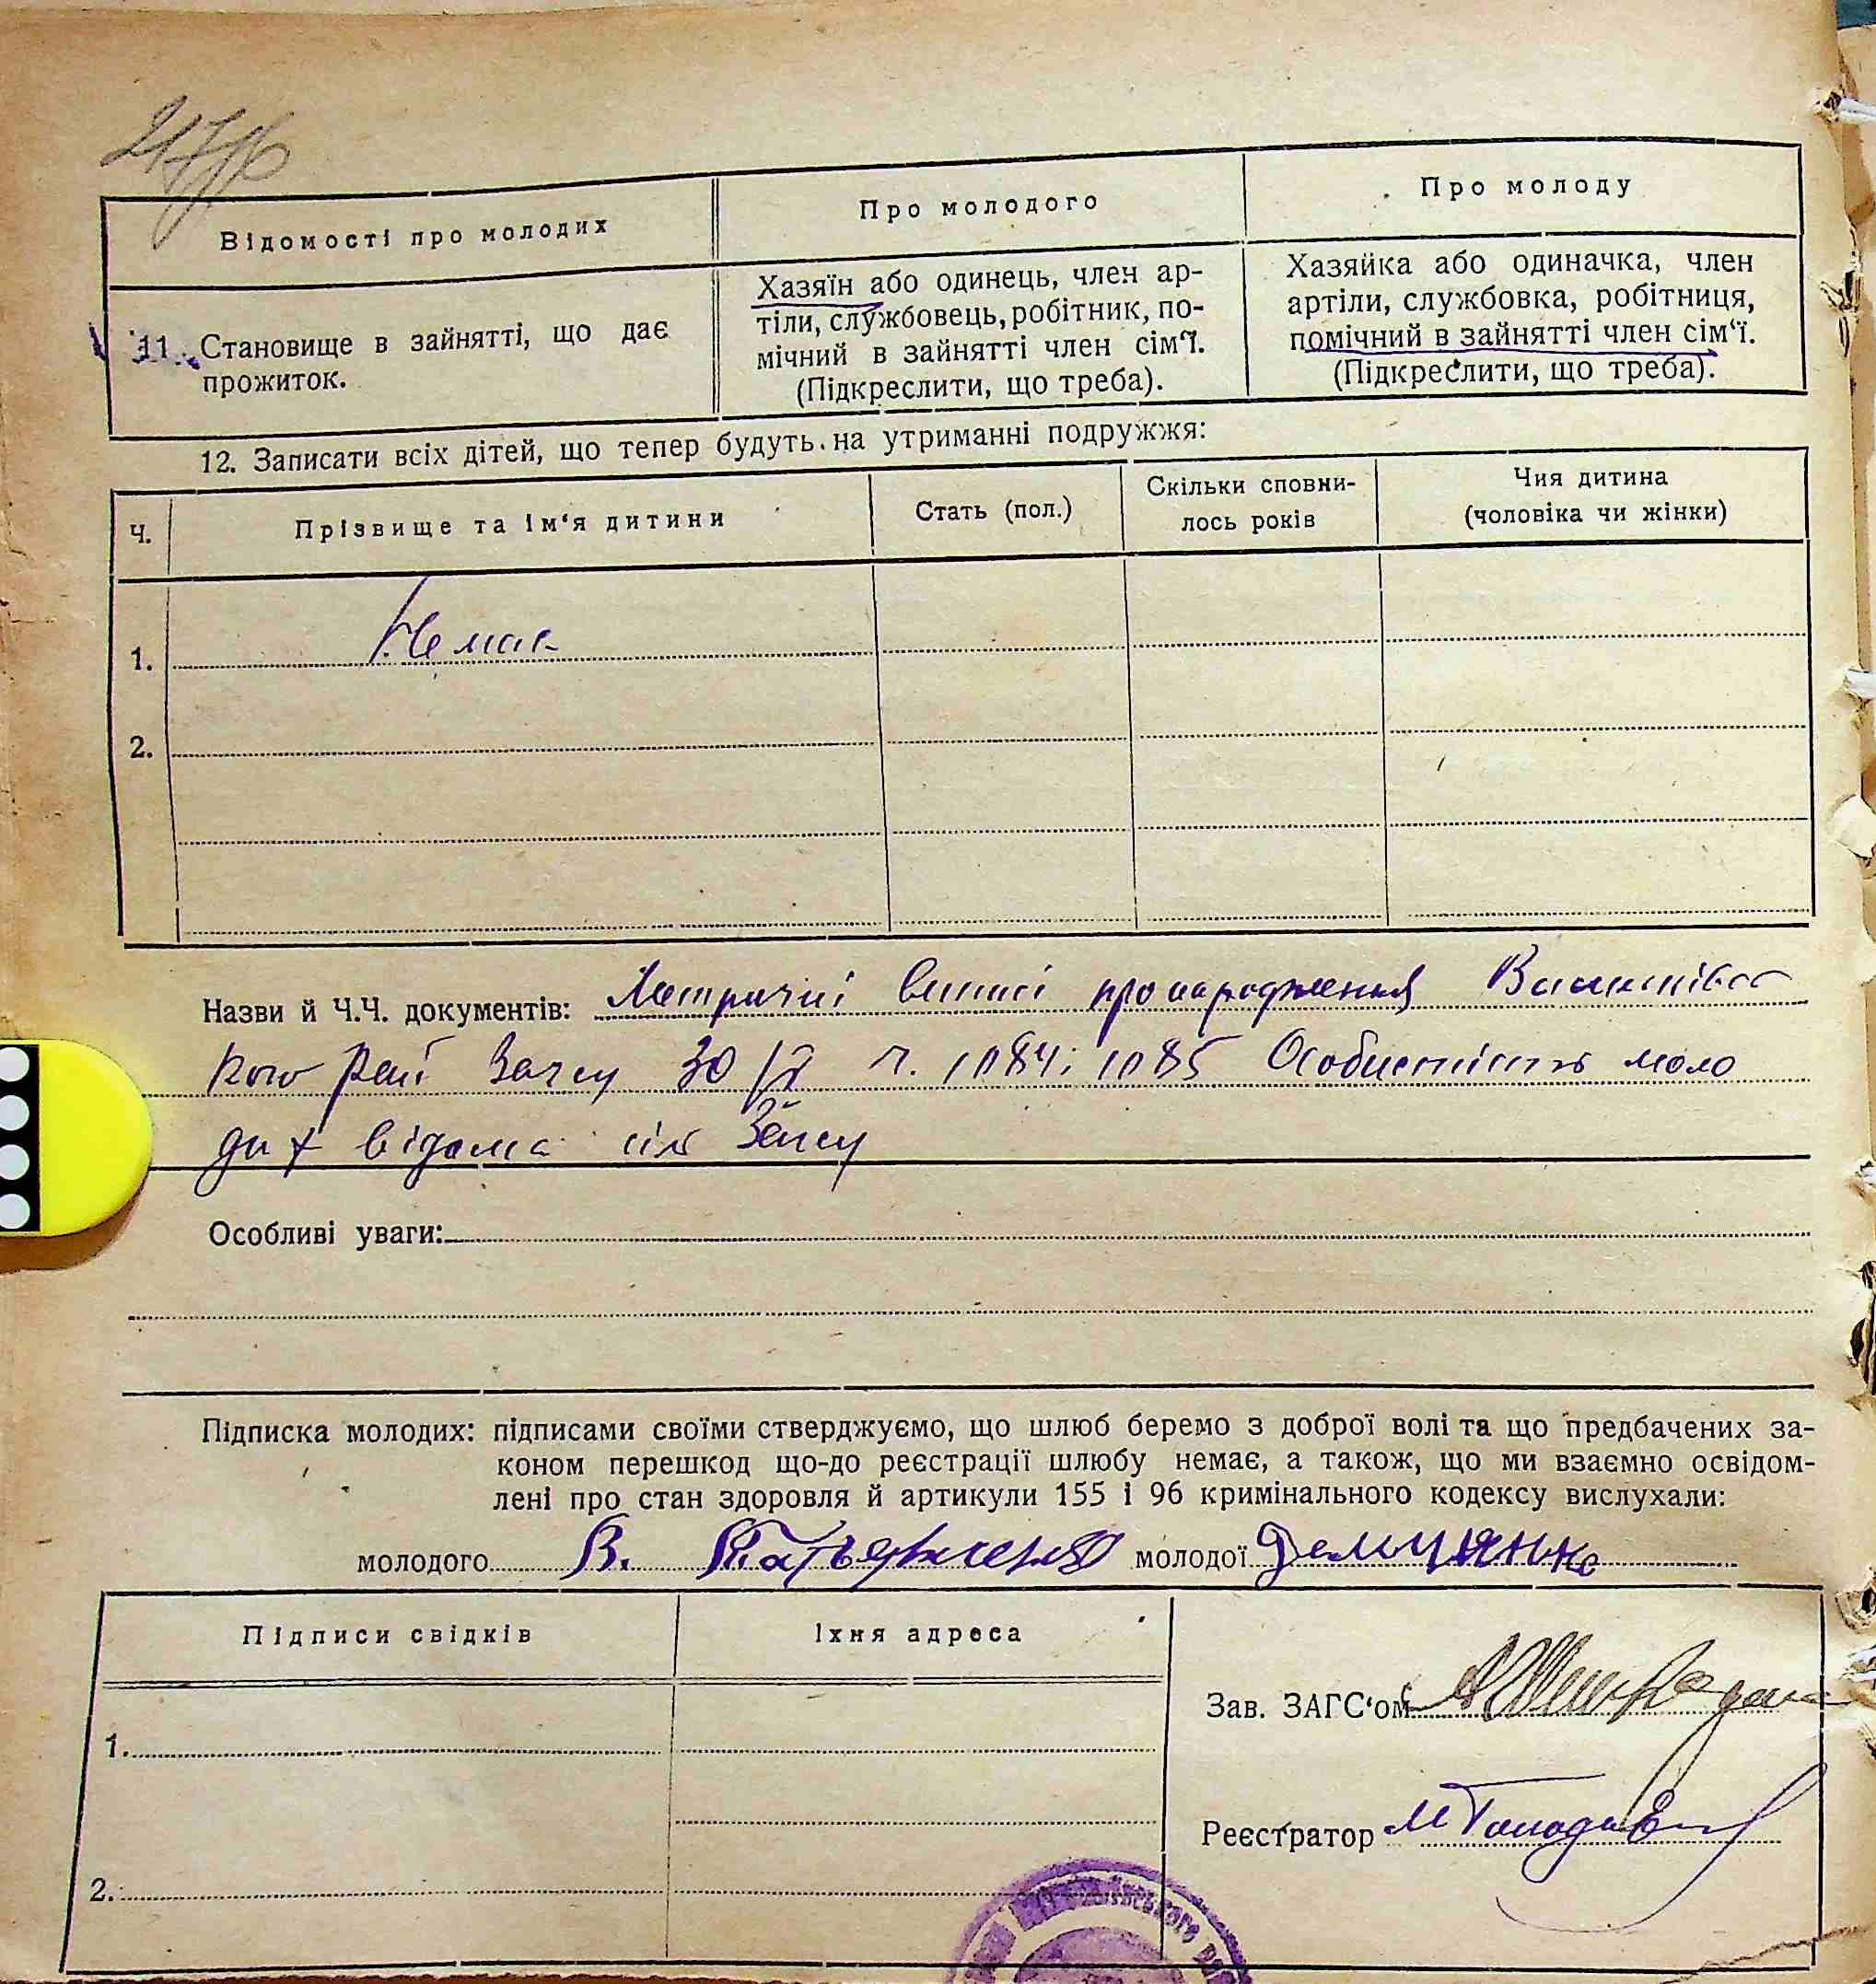 Відомості про молодих
Про молодого
Про молоду
11. Становище в зайнятті, що дає
прожиток.
Хазяїн або одинець, член ар-
тіли, службовець, робітник, по-
мічний в зайнятті член сім'ї.
(Підкреслити, що треба).
Хазяйка або одиначка, член
артіли, службовка, робітниця,
помічний в зайнятті член сім'ї.
(Підкреслити, що треба).
12. Записати всіх дітей, що тепер будуть на утриманні подружжя:
Ч.
Прізвище та ім'я дитини
Стать (пол.)
Скільки сповни-
лось років
Чия дитина
(чоловіка чи жінки)
1. Немає
2.
Назви й Ч.Ч. документів: Метричні виписі про народження
кого Рай Загсу 30/X 1084; 1085 Особистість моло
дих відома Загсу
Особливі уваги:
Підписка молодих: підписами своїми стверджуємо, що шлюб беремо з доброї волі та що предбачених за-
коном перешкод що-до реєстрації шлюбу немає, а також, що ми взаємно освідом-
лені про стан здоровля й артикули 155 і 96 кримінального кодексу вислухали:
молодого В. молодої
Підписи свідків
Їхня адреса
1.
2.
Зав. ЗАГС'ом
Реєстратор М